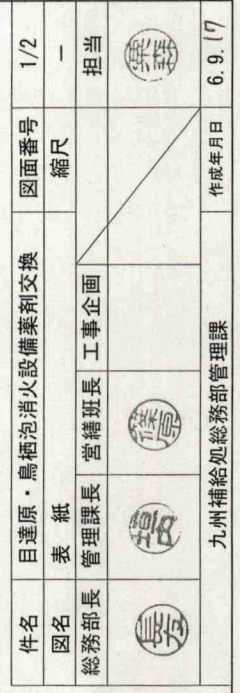 件名 目達原・鳥栖泡消火設備薬剤交換 図面番号 1/2
図名 表紙 縮尺 －
総務部長 管理課長 営繕班長 工事企画 担当
長友 篠原
九州補給処総務部管理課 作成年月日 6.9.17